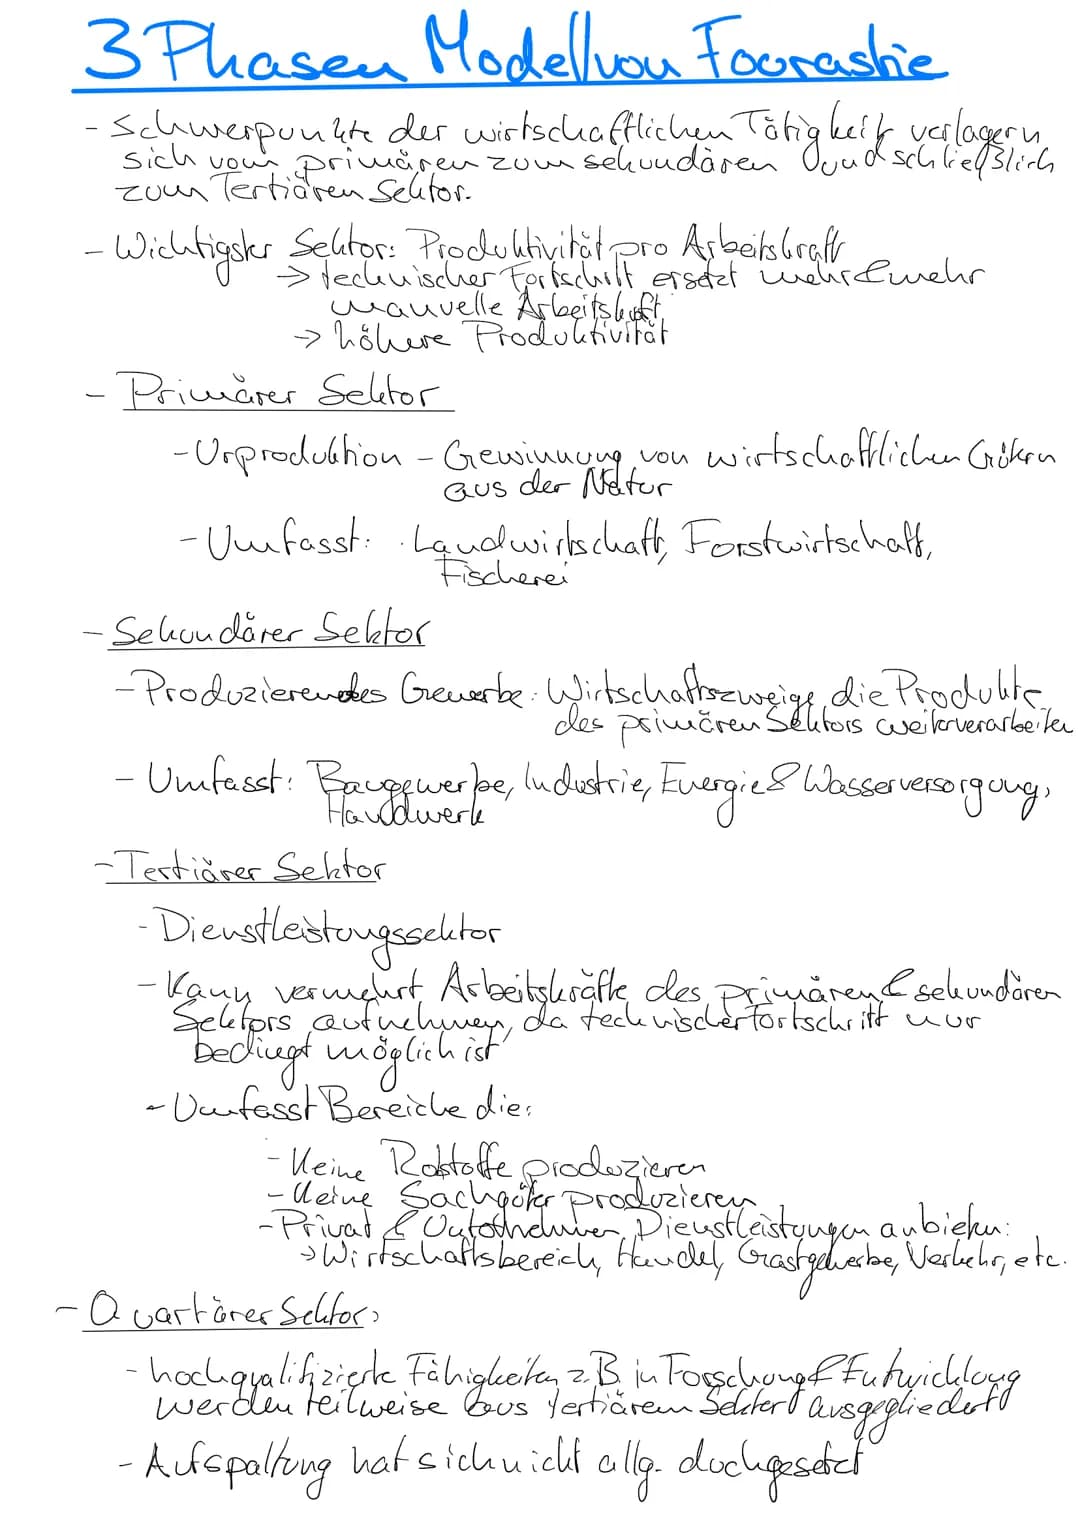 3 Phasen Modell von Foorastie
- Schwerpunkte der wirtschaftlichen Tätigkeit verlagern
sich vom primären zum sekundären und schließlich
zum Tertiären Sektor.
- Wichtigster Sektor: Produktivität pro Arbeitskraft
-> technischer Fortschritt ersetzt mehr & mehr
manuelle Arbeitskraft
-> höhere Produktivität
- Primärer Sektor
- Urproduktion - Gewinnung von wirtschaftlichen Gütern
aus der Natur
- Umfasst: Landwirtschaft, Forstwirtschaft,
Fischerei
- Sekundärer Sektor
- Produzierendes Gewerbe: Wirtschaftszweige, die Produkte
des primären Sektors weiterverarbeiten
- Umfasst: Baugewerbe, Industrie, Energie & Wasserversorgung,
Handwerk
- Tertiärer Sektor
- Dienstleistungssektor
- Kann vermehrt Arbeitskräfte des primären & sekundären
Sektors aufnehmen, da technischer Fortschritt nur
bedingt möglich ist
- Umfasst Bereiche die:
- keine Rohstoffe produzieren
- keine Sachgüter produzieren
- Privat & Dienstleistungen anbieten:
-> Wirtschaftsbereich, Handel, Gastgewerbe, Verkehr, etc.
- Quartärer Sektor:
- hochqualifizierte Fähigkeiten z.B. in Forschung & Entwicklung
werden teilweise aus tertiärem Sektor ausgegliedert
- Aufspaltung hat sich nicht allg. durchgesetzt